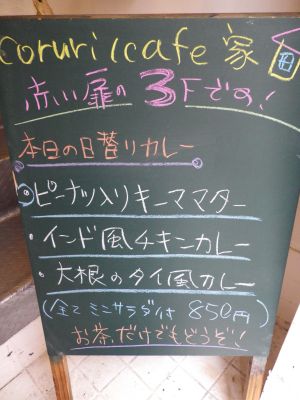 Coruri(cafe 家
赤い扉の3Fです!
本日の日替りカレー
・ピーナッツ入りキーママター
・インド風チキンカレー
・大根のタイ風カレー
(全て ミニサラダ付 850円)
お茶だけでもどうぞ!